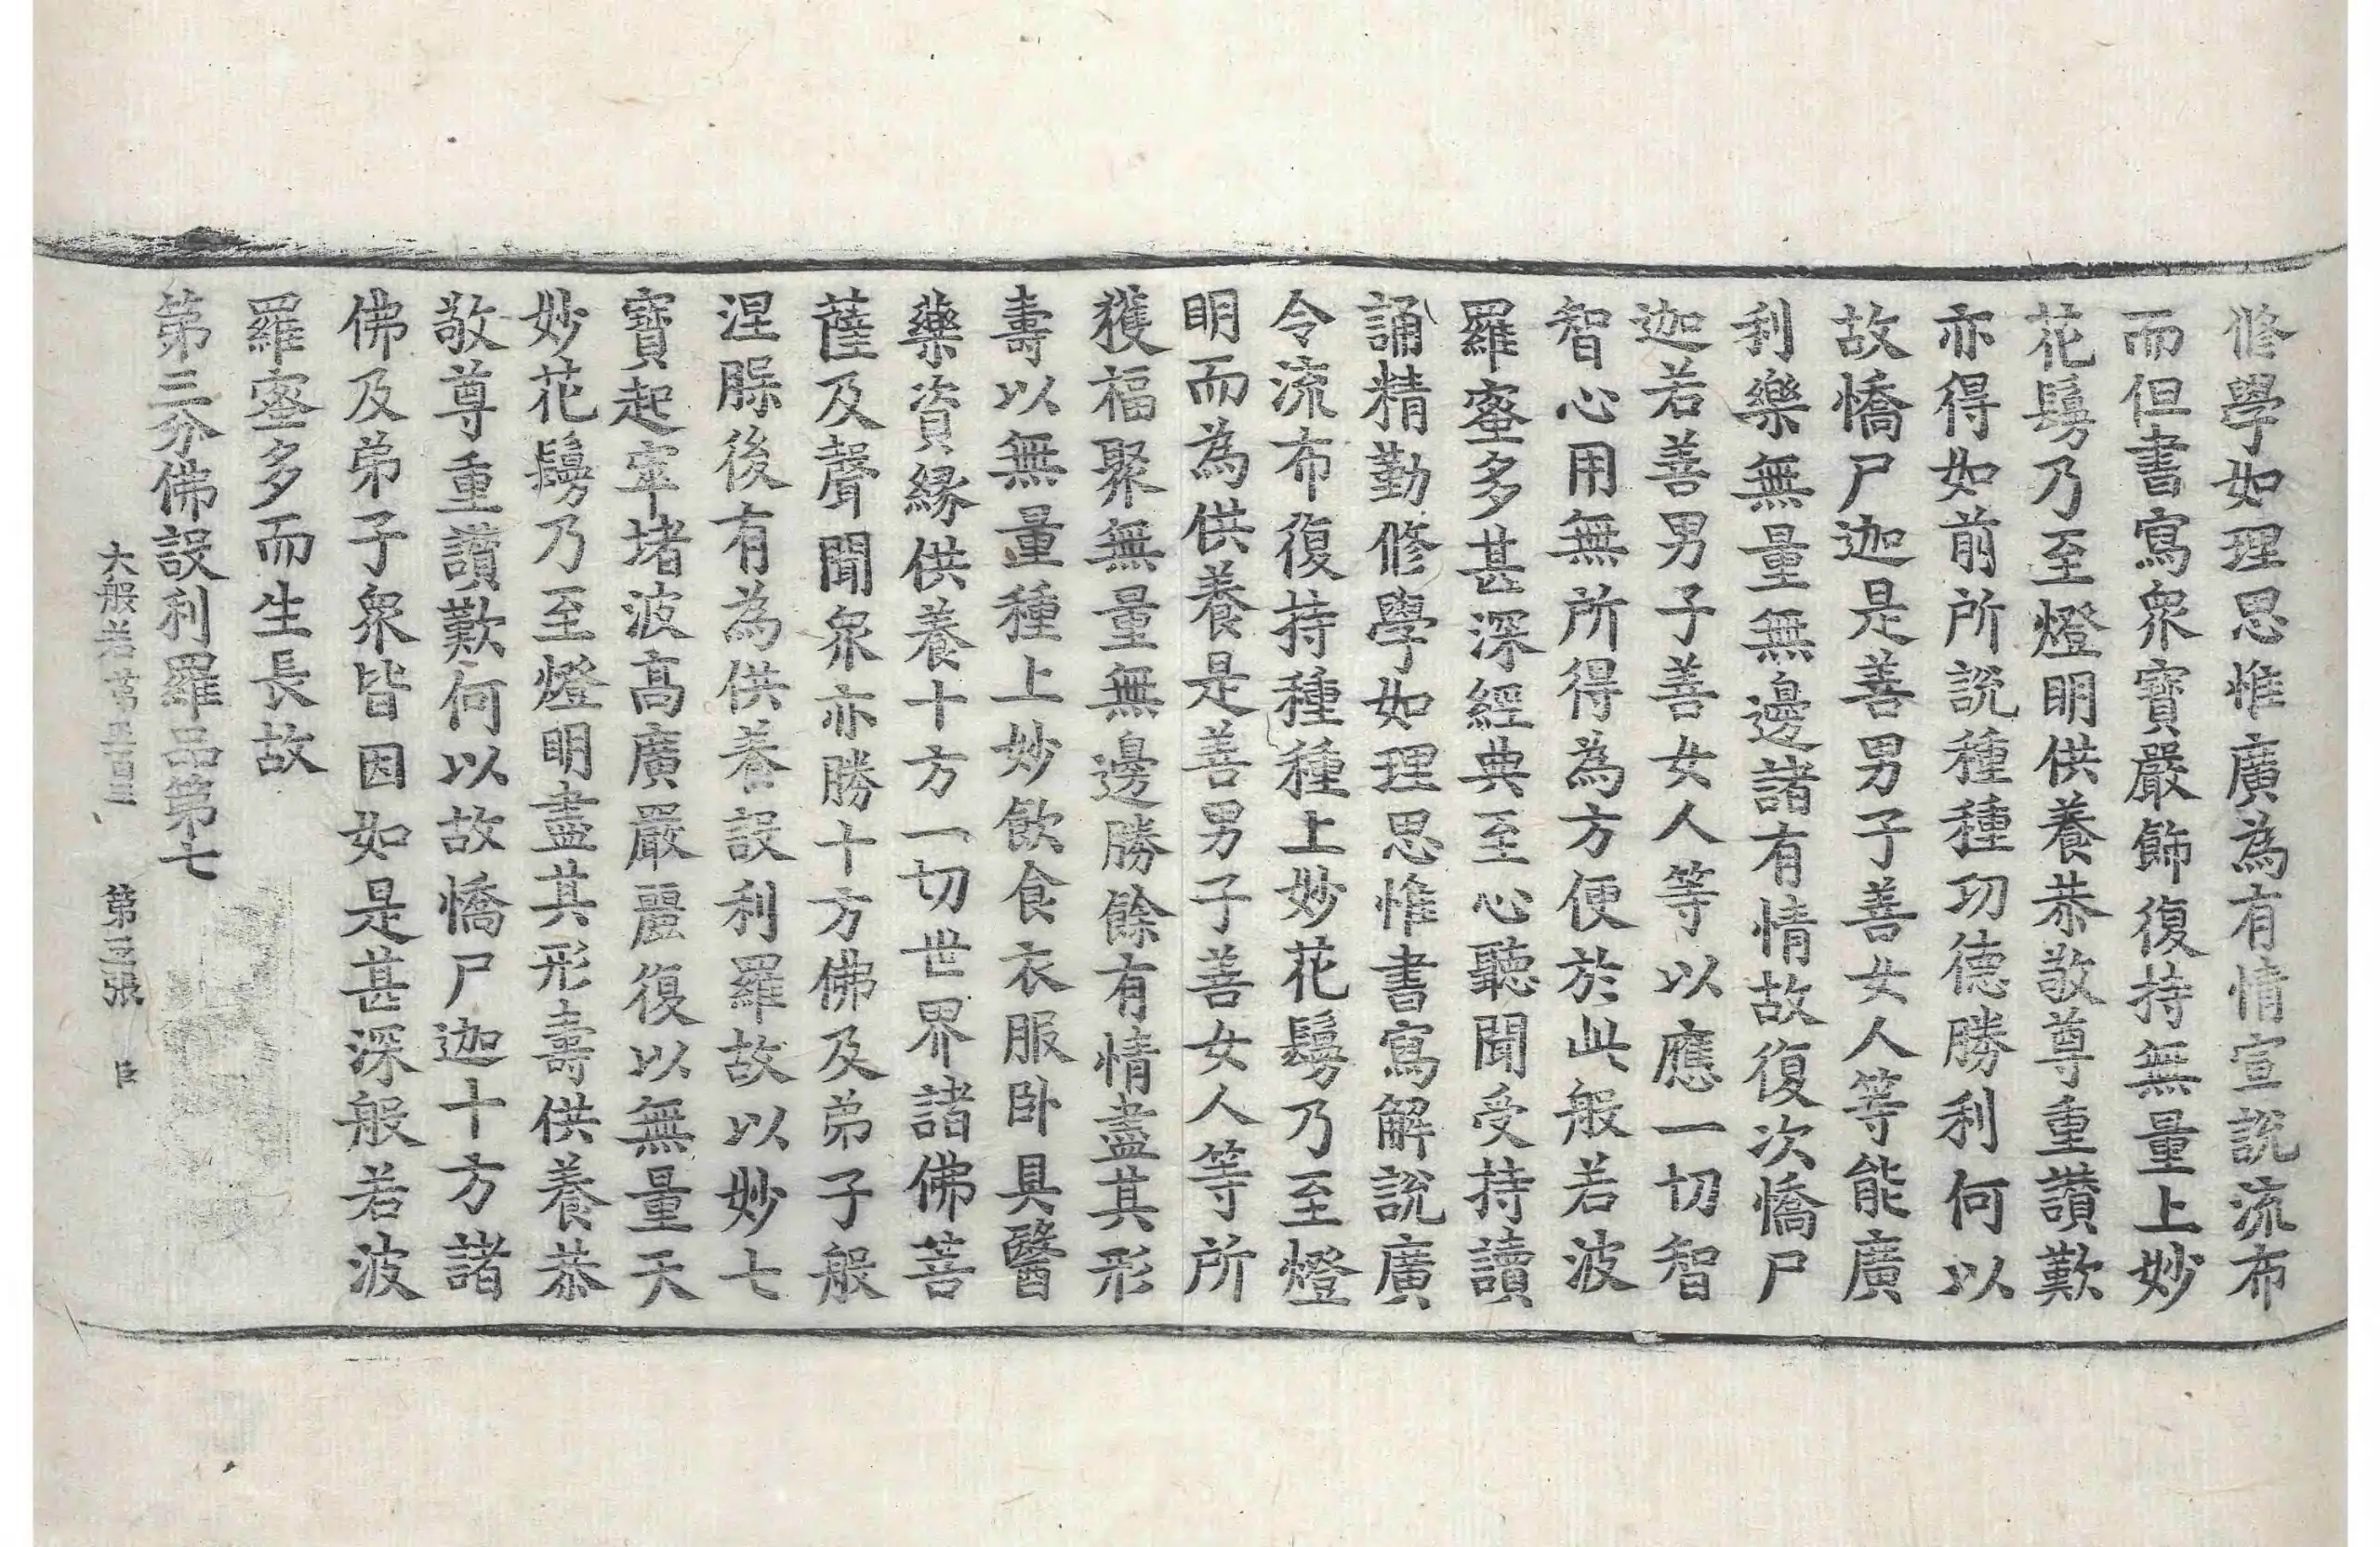 修學如理思惟廣為有情宣說流布
而但書寫衆寶嚴飾復持無量上妙
花鬘乃至燈明供養恭敬尊重讚歎
亦得如前所說種種功德勝利何以
故憍尸迦是善男子善女人等能廣
利樂無量無邊諸有情故復次憍尸
迦若善男子善女人等以應一切智
智心用無所得為方便於此般若波
羅蜜多甚深經典至心聽聞受持讀
誦精勤修學如理思惟書寫解說廣
令流布復持種種上妙花鬘乃至燈
明而為供養是善男子善女人等所
獲福聚無量無邊勝餘有情盡其形
壽以無量種上妙飲食衣服卧具醫
藥資緣供養十方一切世界諸佛菩
薩及聲聞衆亦勝十方佛及弟子般
涅脲後有為供養設利羅故以妙七
寶起窣堵波高廣嚴麗復以無量天
妙花鬘乃至燈明盡其形壽供養恭
敬尊重讚歎何以故憍尸迦十方諸
佛及弟子衆皆因如是甚深般若波
羅蜜多而生長故
第三分佛設利羅品第七
大般若第五百三 第三張